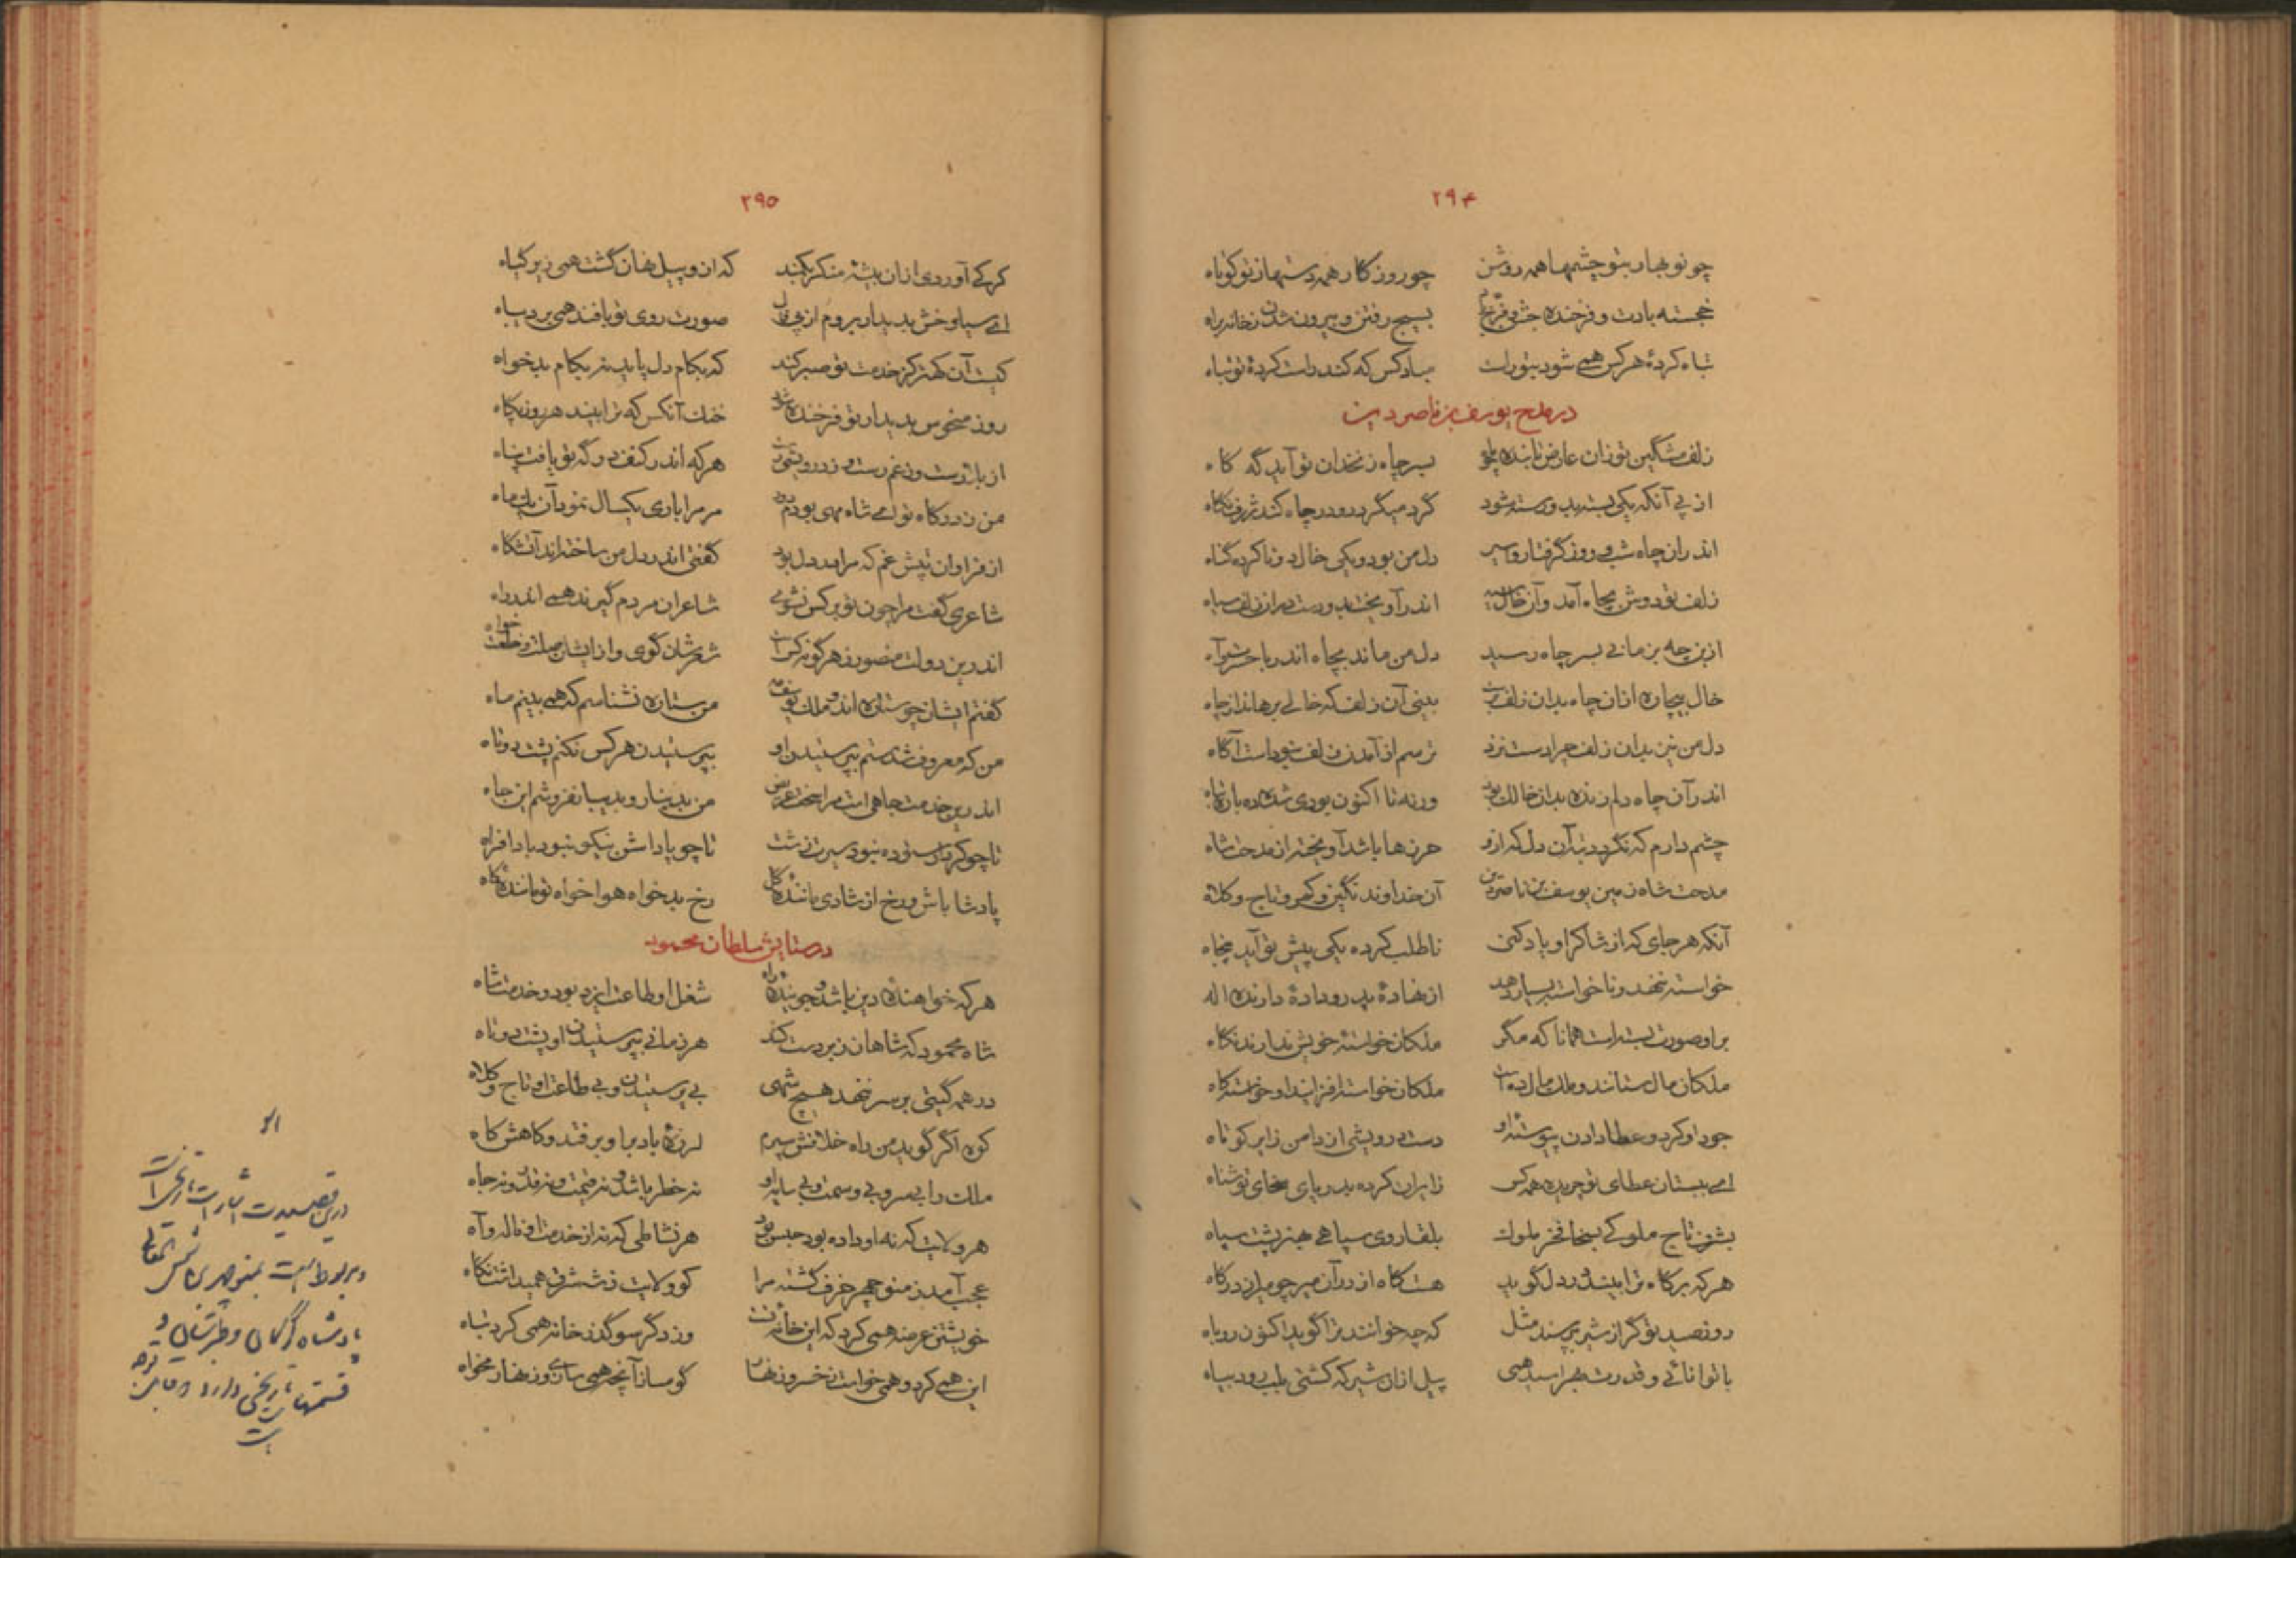 ۲۹۴
چو نو بهار بتو چشمها همه روشن چو روزگار همه دستها ز تو کوتاه
خجسته بادت و فرخنده جشن و فرّخ بسیج رفتن و بیرون شدن ز خانه براه
تباه کردهٔ هرکس همی شود بتو راست مباد کس که کند راست کردهٔ تو تباه
در مدح یوسف بن ناصردین
زلف مشگین تو زان عارض تابنده چو بسر چاه زنخدان تو آید گه گاه
از پی آنکه یکی بسته بدو رسته شود گرد میگردد و در چاه کند ژرف نگاه
اندران چاه شب و روز گرفتار و اسیر دل من بود و یکی خال دو تا کرده گناه
زلف تو دوش بچاه آمد و آن خال سیه اندر آویخت بدو رست دراز زلف سیاه
ازبن چه بزمانی بسر چاه رسید دل من ماند بچاه اندر با حسرت و آه
خال بیچاره ازان چاه بدان زلف برست بینی آن زلف که خالی برهاند از چاه
دل من نیز بدان زلف چرا دست نزد ترسم از آمدن زلف نبوداست آگاه
اندر آن چاه دلم زنده بدان خالک بود ورنه تا اکنون بودی شده ده باره تباه
چشم دارم که نگردد تبه آن دل که ازو حرزها باشد آویخته از مدحت شاه
مدحت شاه زمین یوسف بن ناصردین آن خداوند نگین و کمر و تاج و کلاه
آنکه هر جای که از شاکر او یاد کنی ناطلب کرده یکی پیش تو آید پنجاه
خواسته ننهد و ناخواسته بسیار دهد از نهادهٔ پدر و دادهٔ دارنده اله
بر او صورت بسته است همانا که مگر ملکان خواستهٔ خویش ندارند نگاه
ملکان مال ستانند و ملک مال ده است ملکان خواسته افزاید او خواسته کاه
جود او کرد و عطا دادن پیوستهٔ او دست درویشی از دامن زایر کوتاه
ای ببستان عطای تو چریده همه کس زایران کرده بدریای سخای تو شناه
بشرف تاج ملوکی بسخا فخر ملوک بلقا روی سپاهی بهنر پشت سپاه
هرکه برگاه ترا بیند در دل گوید هست گاه از در آن میر چو میر از در گاه
روز صید تو گر از شیر بپرسند مثل که چه خوانند ترا گوید اکنون روباه
با توانائی و قدرت بهراسد همی پیل ازان شیر که کشتی بلب رود بپاه
۲۹۵
کرگی آوردی ازان بیشه منکر بکمند که ازو پیل نهان گشت همی زیر گیاه
ای سیاوخش بدیدار بروم از پی فال صورت روی تو بافند همی بر دیباه
کیست آن کهتر کز خدمت تو صبر کند که بکام دل باید نه بکام بدخواه
روز منحوس بدیدار تو فرخنده شود خنک آنکس که ترا بیند هر روز پگاه
از بلا رست و ز غم رست و ز درویشی رست هرکه اندر کنف درگه تو یافت پناه
من ز درگاه تو ای شاه مهی بودم دور مر مرا باری یکسال نمود آن یک ماه
از فراوان تپش غم که مرا در دل بود گفتی اندر دل من ساخته‌اند آتشگاه
شاعری گفت مرا چون تو بر کس نشوی شاعران مردم گیرند همی اندر راه
اندرین دولت منصور ز هر گونه کس است شعرشان گوی و از ایشان صلت و خلعت خواه
گفتم ایشان چو ستاره‌اند و ملک یوسف مه من ستاره نشناسم که همی بینم ماه
من که معروف شدستم بپرستیدن او بپرستیدن هر کس نکنم پشت دو تاه
اندرین خدمت جاهی است مرا سخت عریض من بدینار و بدیبا نفروشم این جاه
تا چو کردار ستوده نبود سیرت زشت تا چو پاداش نیکو نبود بادافراه
پادشا باش و رخ از شادی مانندهٔ گل رخ بدخواه هواخواه تو مانندهٔ کاه
در ستایش سلطان محمود
هرکه خواهندهٔ دین باشد و جویندهٔ راه شغل او طاعت ایزد بود و خدمت شاه
شاه محمود که شاهان زبردست کند هر زمانی بپرستیدن او پشت دو تاه
در همه گیتی بر سر ننهد هیچ شهی بی پرستیدن و بی طاعت او تاج و کلاه
کوه اگر گوید من راه خلافش سپرم لرزهٔ باد بر او برفتد و کاهش کاه
ملک رایی سر و بی وسمت و بی سایهٔ او نه خطر باشد و نه قیمت و نه قدر و نه جاه
هر ولایت که نه او داده بود حبس بود هر نشاطی که نه از خدمت او ناله و آه
عجب آمد ز منوچهر خرف گشته مرا کو ولایت ز شه شرق همیداشت نگاه
خویشتن عرضه همی کرد که این خانه تست وز دگر سو گذر خانه همی کرد تباه
این همی کرد و همی خواست ز خسرو زنهار کو مساز آنچه همی سازی و زنهار مخواه
درین قصیدت اشارت تاریخی است
و مربوط است بمنوچهری قابوس
پادشاه گرگان و طبرستان و
قسمتهای تاریخی دارد و قابل توجه
است